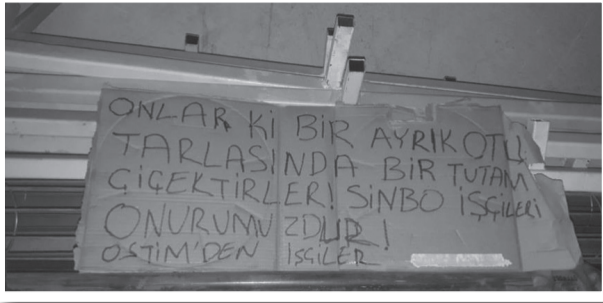 ONLAR Kİ BİR AYRIK OTU
TARLASINDA BİR TUTAM
ÇİÇEKTİRLER! SİNBO İŞÇİLERİ
ONURUMUZDUR!
OSTİM'DEN İŞÇİLER